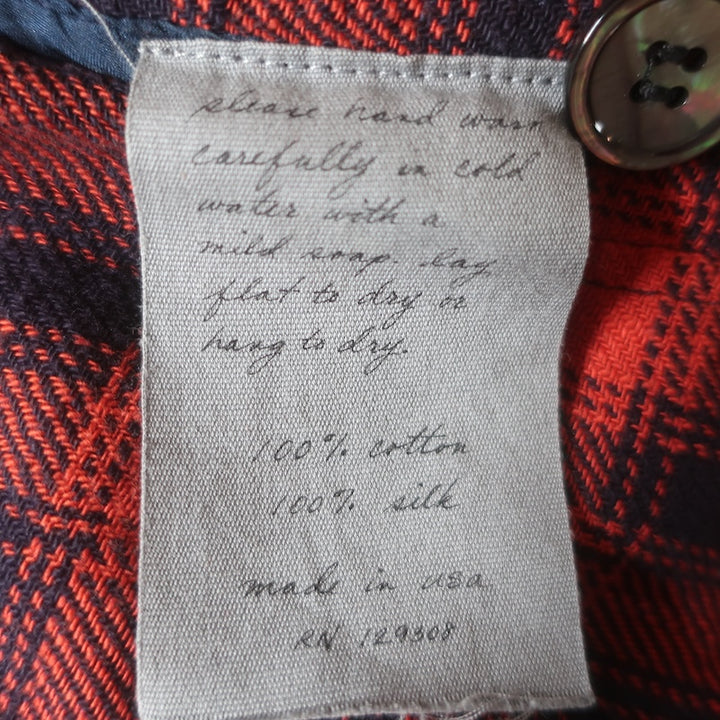 please hand wash
carefully in cold
water with a
mild soap. lay
flat to dry or
hang to dry.
100% cotton
100% silk
made in usa
RN 129308